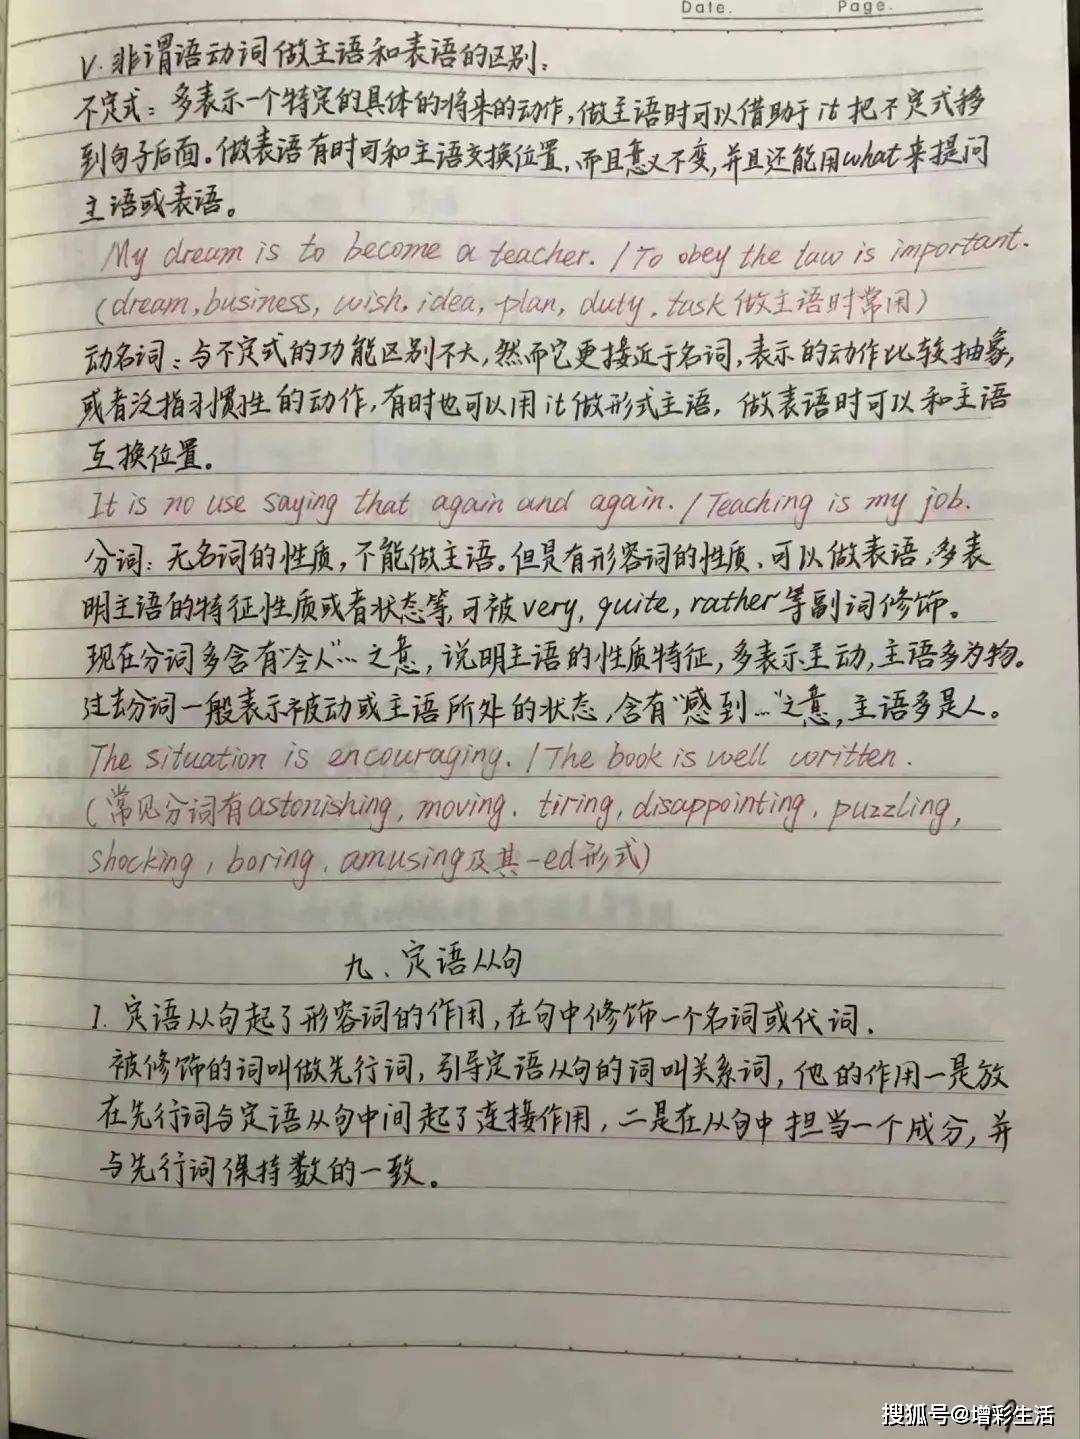 Date. Page.
V. 非谓语动词做主语和表语的区别:
不定式: 多表示一个特定的具体的将来的动作,做主语时可以借助于it把不定式移
到句子后面。做表语有时可和主语交换位置,而且意义不变,并且还能用what来提问
主语或表语。
My dream is to become a teacher. / To obey the law is important.
(dream, business, wish, idea, plan, duty, task做主语时常用)
动名词: 与不定式的功能区别不大,然而它更接近于名词,表示的动作比较抽象,
或者泛指习惯性的动作,有时也可以用it做形式主语,做表语时可以和主语
互换位置。
It is no use saying that again and again. / Teaching is my job.
分词: 无名词的性质,不能做主语。但是有形容词的性质、可以做表语,多表
明主语的特征性质或者状态等,可被very, quite, rather等副词修饰。
现在分词多含有"令人"…之意,说明主语的性质特征,多表示主动,主语多为物。
过去分词一般表示被动或主语所处的状态,含有"感到…"之意,主语多是人。
The situation is encouraging. / The book is well written.
(常见分词有astonishing, moving, tiring, disappointing, puzzling,
shocking, boring, amusing及其-ed形式)
九、定语从句
1. 定语从句起了形容词的作用,在句中修饰一个名词或代词.
被修饰的词叫做先行词,引导定语从句的词叫关系词,他的作用一是放
在先行词与定语从句中间起了连接作用,二是在从句中担当一个成分,并
与先行词保持数的一致。
搜狐号@增彩生活